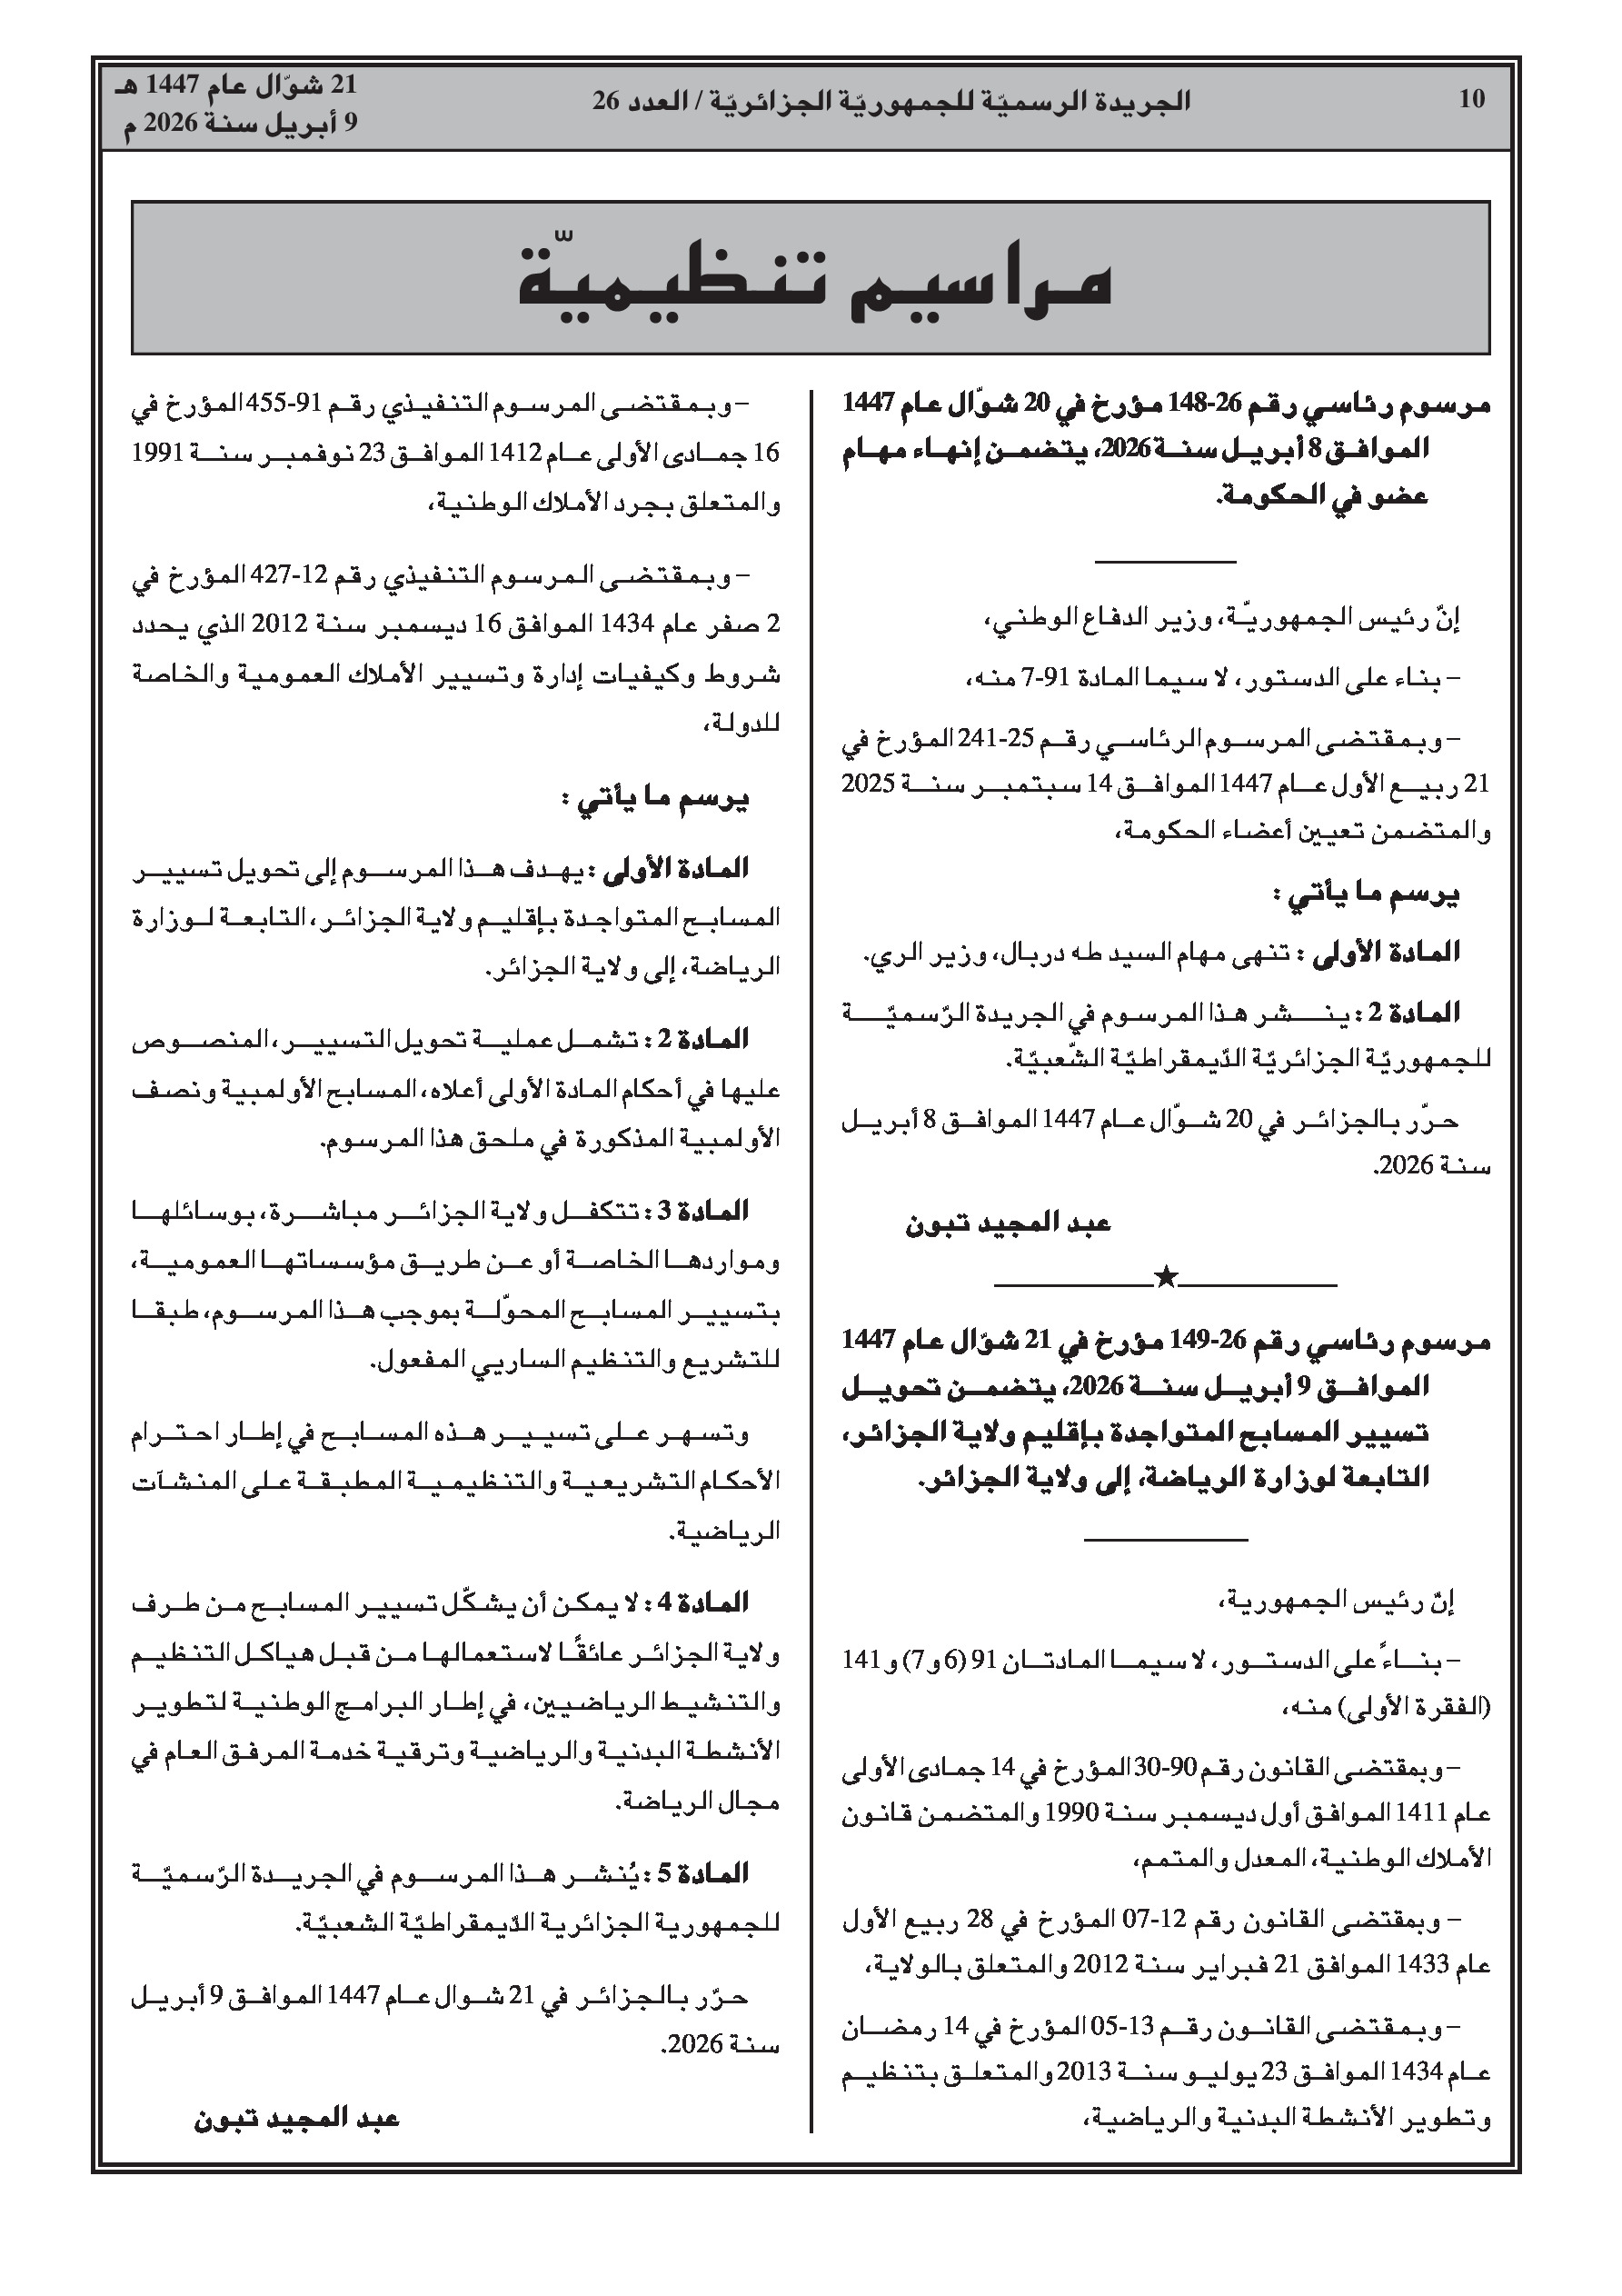 10
الجريدة الرسميّة للجمهوريّة الجزائريّة / العدد 26
21 شوّال عام 1447 هـ
9 أبريل سنة 2026 م
مراسيم تنظيميّة
مرسوم رئاسي رقم 26-148 مؤرخ في 20 شوّال عام 1447
الموافق 8 أبريل سنة 2026، يتضمن إنهاء مهام
عضو في الحكومة.
إنّ رئيس الجمهوريّة، وزير الدفاع الوطني،
– بناء على الدستور، لا سيما المادة 91-7 منه،
– وبمقتضى المرسوم الرئاسي رقم 25-241 المؤرخ في
21 ربيع الأول عام 1447 الموافق 14 سبتمبر سنة 2025
والمتضمن تعيين أعضاء الحكومة،
يرسم ما يأتي :
المادة الأولى : تنهى مهام السيد طه دربال، وزير الري.
المادة 2 : ينشر هذا المرسوم في الجريدة الرّسميّة
للجمهوريّة الجزائريّة الدّيمقراطيّة الشّعبيّة.
حرّر بالجزائر في 20 شوّال عام 1447 الموافق 8 أبريل
سنة 2026.
عبد المجيد تبون
مرسوم رئاسي رقم 26-149 مؤرخ في 21 شوّال عام 1447
الموافق 9 أبريل سنة 2026، يتضمن تحويل
تسيير المسابح المتواجدة بإقليم ولاية الجزائر،
التابعة لوزارة الرياضة، إلى ولاية الجزائر.
إنّ رئيس الجمهورية،
– بناءً على الدستور، لا سيما المادتان 91 (6 و7) و141
(الفقرة الأولى) منه،
– وبمقتضى القانون رقم 90-30 المؤرخ في 14 جمادى الأولى
عام 1411 الموافق أول ديسمبر سنة 1990 والمتضمن قانون
الأملاك الوطنية، المعدل والمتمم،
– وبمقتضى القانون رقم 12-07 المؤرخ في 28 ربيع الأول
عام 1433 الموافق 21 فبراير سنة 2012 والمتعلق بالولاية،
– وبمقتضى القانون رقم 13-05 المؤرخ في 14 رمضان
عام 1434 الموافق 23 يوليو سنة 2013 والمتعلق بتنظيم
وتطوير الأنشطة البدنية والرياضية،
– وبمقتضى المرسوم التنفيذي رقم 91-455 المؤرخ في
16 جمادى الأولى عام 1412 الموافق 23 نوفمبر سنة 1991
والمتعلق بجرد الأملاك الوطنية،
– وبمقتضى المرسوم التنفيذي رقم 12-427 المؤرخ في
2 صفر عام 1434 الموافق 16 ديسمبر سنة 2012 الذي يحدد
شروط وكيفيات إدارة وتسيير الأملاك العمومية والخاصة
للدولة،
يرسم ما يأتي :
المادة الأولى : يهدف هذا المرسوم إلى تحويل تسيير
المسابح المتواجدة بإقليم ولاية الجزائر، التابعة لوزارة
الرياضة، إلى ولاية الجزائر.
المادة 2 : تشمل عملية تحويل التسيير، المنصوص
عليها في أحكام المادة الأولى أعلاه، المسابح الأولمبية ونصف
الأولمبية المذكورة في ملحق هذا المرسوم.
المادة 3 : تتكفل ولاية الجزائر مباشرة، بوسائلها
ومواردها الخاصة أو عن طريق مؤسساتها العمومية،
بتسيير المسابح المحوّلة بموجب هذا المرسوم، طبقا
للتشريع والتنظيم الساريي المفعول.
وتسهر على تسيير هذه المسابح في إطار احترام
الأحكام التشريعية والتنظيمية المطبقة على المنشآت
الرياضية.
المادة 4 : لا يمكن أن يشكّل تسيير المسابح من طرف
ولاية الجزائر عائقًا لاستعمالها من قبل هياكل التنظيم
والتنشيط الرياضيين، في إطار البرامج الوطنية لتطوير
الأنشطة البدنية والرياضية وترقية خدمة المرفق العام في
مجال الرياضة.
المادة 5 : يُنشر هذا المرسوم في الجريدة الرّسميّة
للجمهورية الجزائرية الدّيمقراطيّة الشعبيّة.
حرّر بالجزائر في 21 شوال عام 1447 الموافق 9 أبريل
سنة 2026.
عبد المجيد تبون